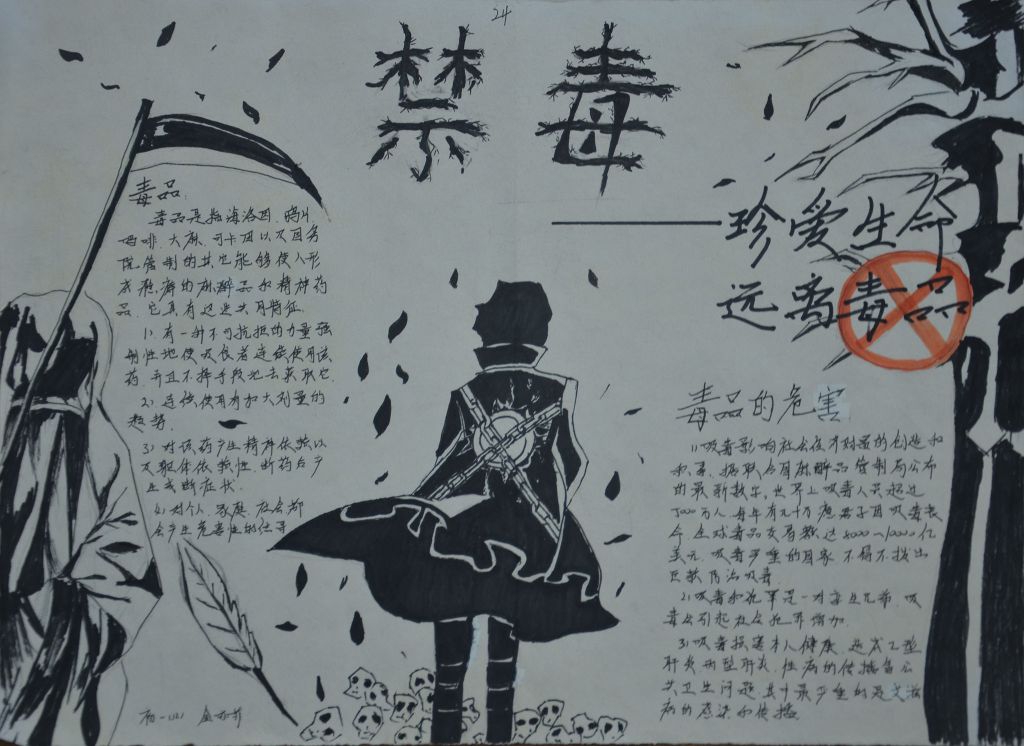 24
禁毒
珍爱生命
远离毒品
毒品:
毒品是指海洛因、鸦片
吗啡、大麻、可卡因以及国务
院管制的其它能够使人形
成瘾癖的麻醉品和精神药
品、它具有这些共同特征
1、有一种不可抗拒的力量强
制性地使吸食者连续使用该
药、并且不择手段地去获取它
2、连续使用有加大剂量的
趋势.
3、对该药产生精神依赖以
及躯体依赖性、断药后产
生戒断症状.
4、对个人、家庭、社会都
会产生危害性的结果
毒品的危害
1、吸毒影响社会经济财富的创造和
积累、据联合国麻醉品管制局公布
的最新数字、世界上吸毒人员超过
5000万人、每年有几十万瘾君子因吸毒丧
命、全球毒品交易额达8000~10000亿
美元、吸毒严重的国家不得不拨出
巨款防治吸毒.
2、吸毒和犯罪是一对孪生兄弟、吸
毒会引起社会犯罪增加.
3、吸毒损害本人健康、造成乙型
肝炎丙型肝炎、性病的传播与公
共卫生问题、其中最严重的是艾滋
病的感染和传播